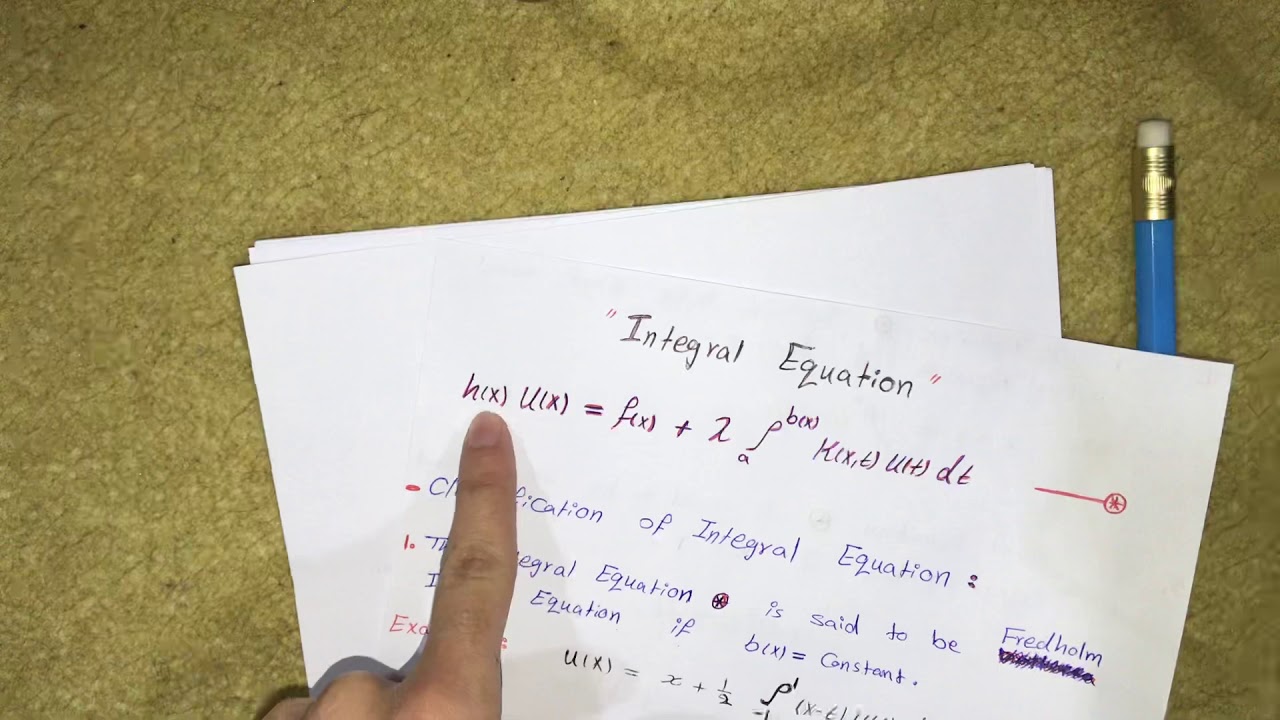 "Integral Equation"
h(x) u(x) = f(x) + λ ∫ₐ^b(x) K(x,t) u(t) dt ⊛
of Integral Equation :
1. Equation ⊛ is said to be Fredholm
Equation if b(x) = Constant.
u(x) = x + 1/2 ∫₋₁^1 (x-t)